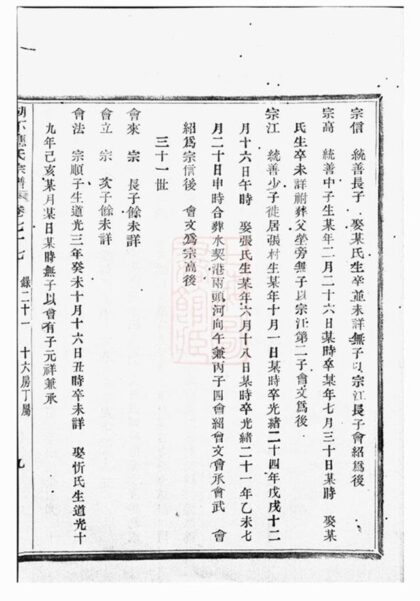 宗信　統善長子　娶某氏生卒並未詳無子以宗江長子會紹爲後
宗高　統善中子生某年二月二十六日某時卒某年七月三十日某時　娶某
氏生卒未詳祔葬父塋旁無子以宗江第二子會文爲後
宗江　統善少子徙居張村生某年十月一日某時卒光緒二十四年戊戌十二
月十六日午時　娶張氏生某年六月十八日某時卒光緒二十一年乙未七
月二十日申時合葬水契港兩頭河向午兼丙子四會紹會文會承會武　會
紹爲宗信後　會文爲宗高後
三十一世
會來　宗　長子餘未詳
會立　宗　次子餘未詳
會法　宗順子生道光三年癸未十月十六日丑時卒未詳　娶忻氏生道光十
九年己亥某月某日某時無子以會有子元祥兼承
氏宗譜　卷七十七　錄二十一　十六房丁屬　九